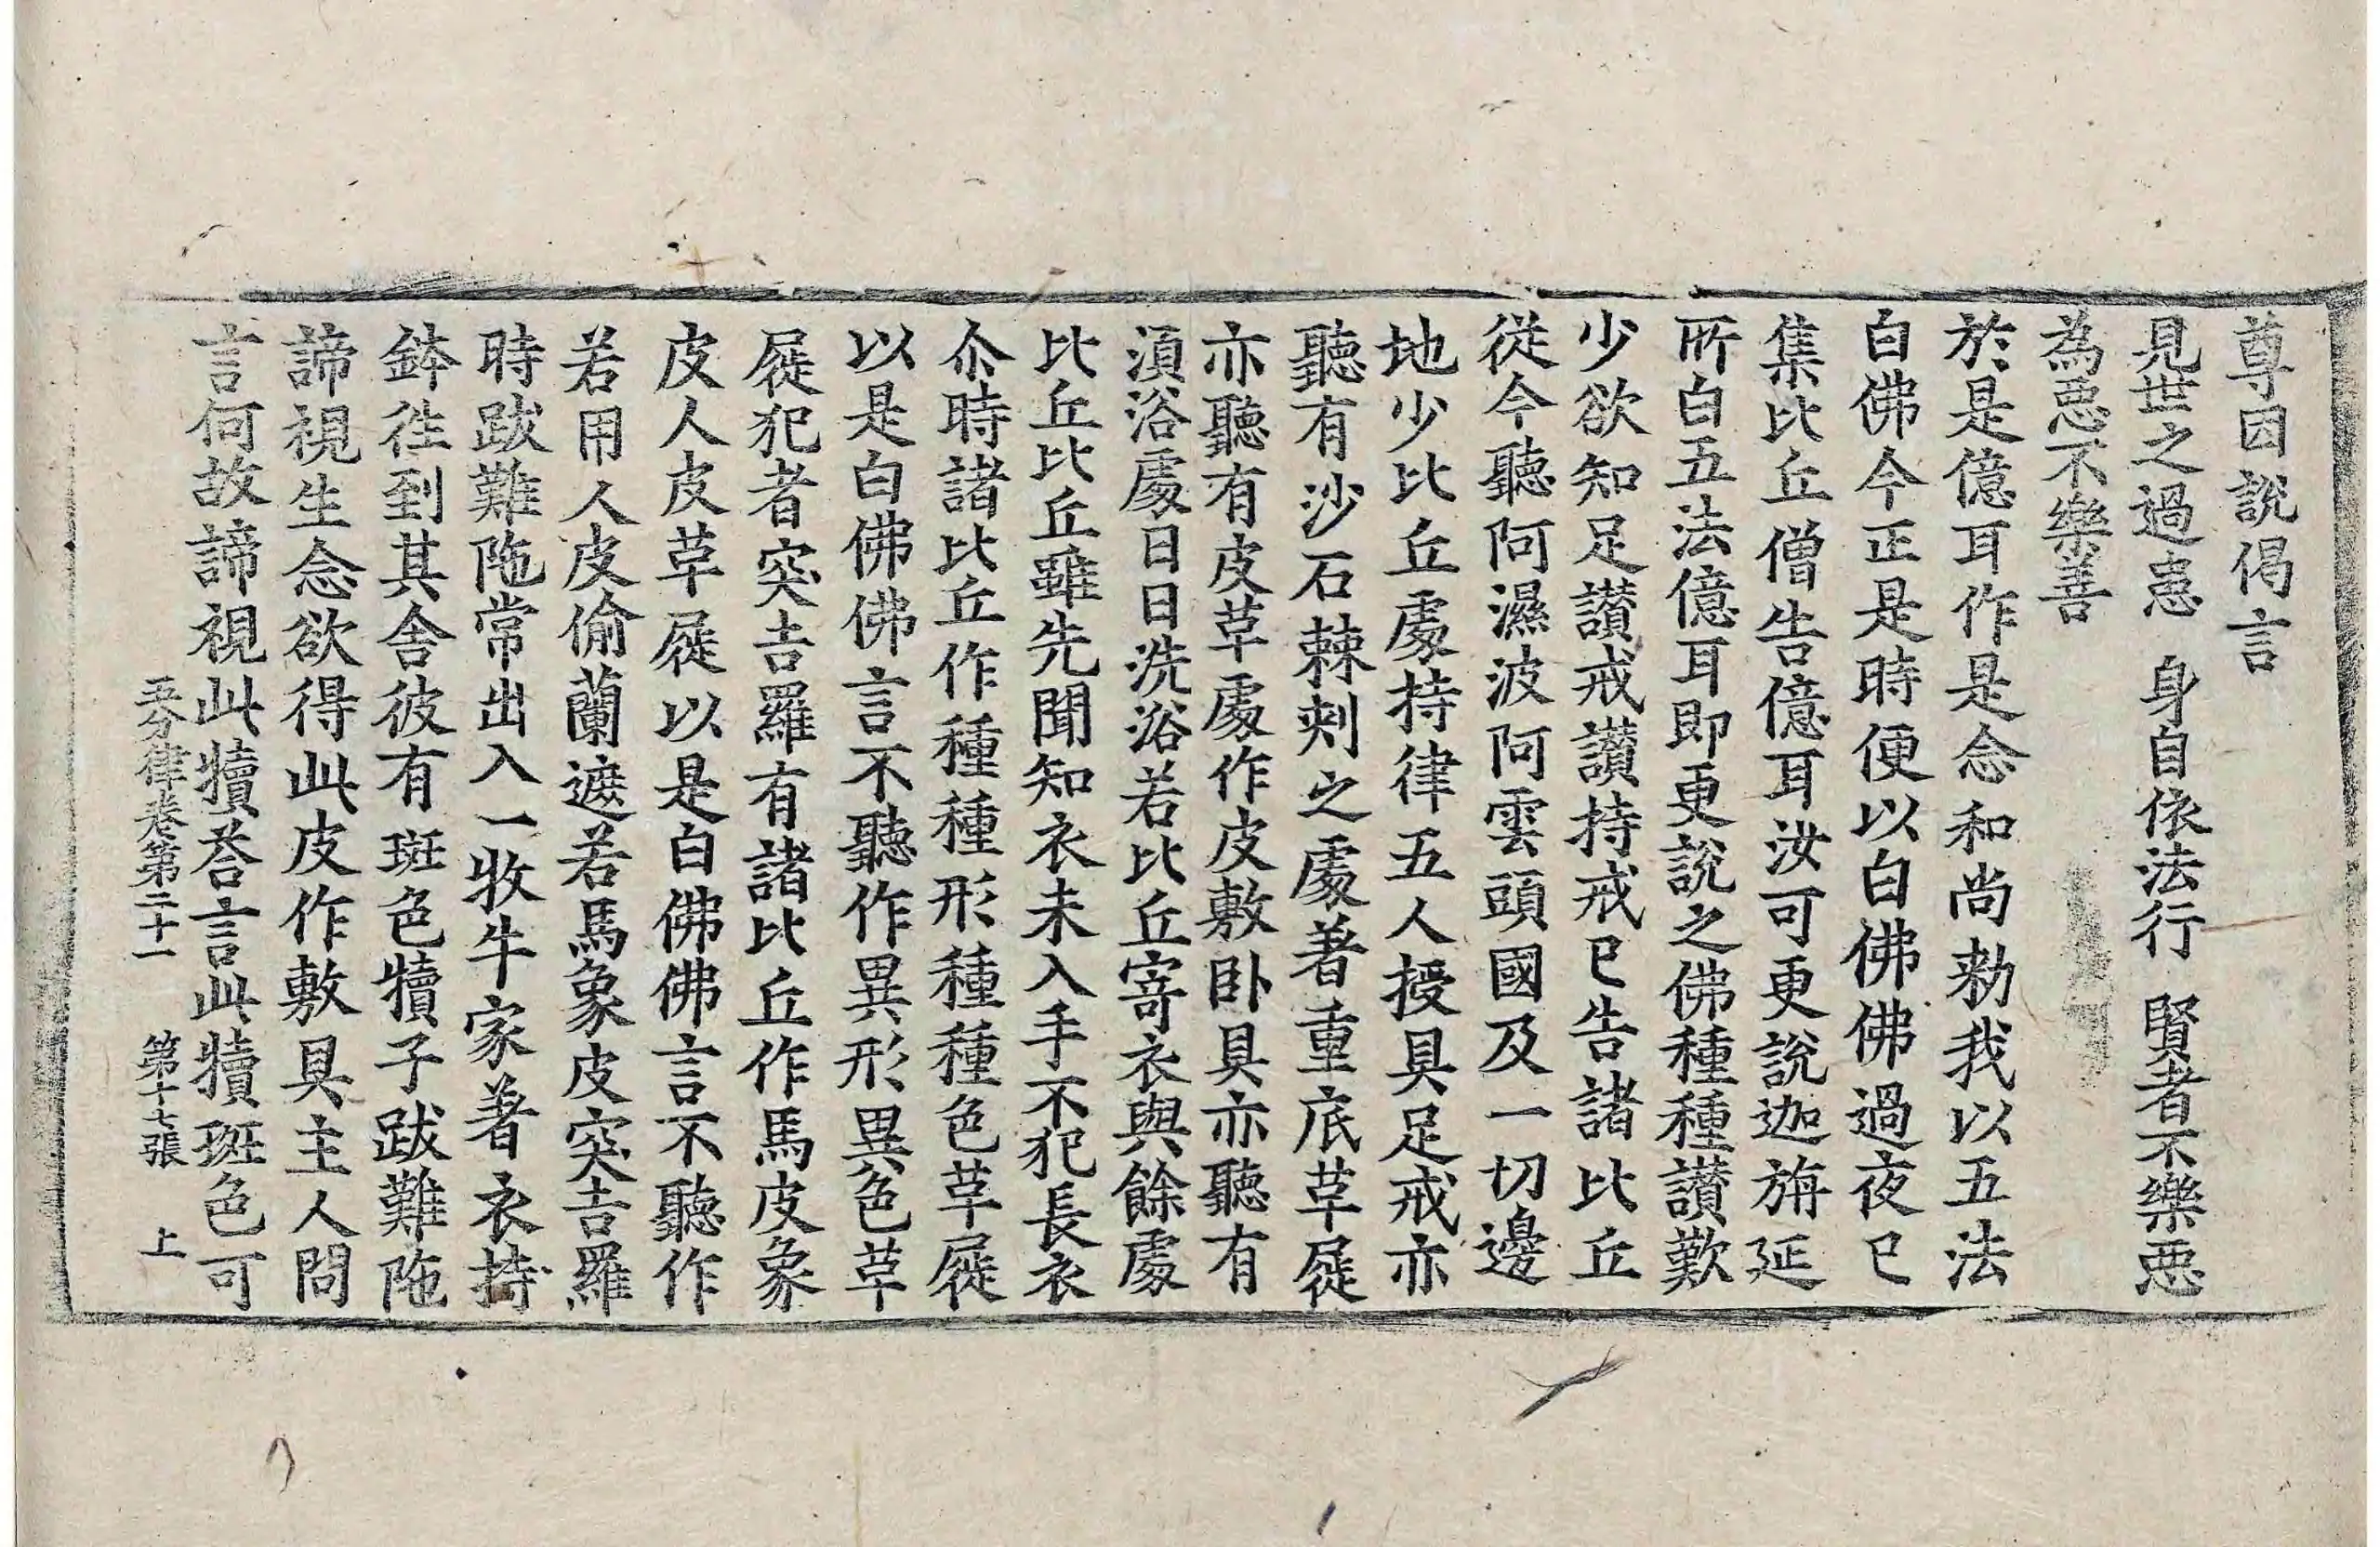 尊因說偈言
見世之過患　身自依法行　賢者不樂惡
為惡不樂善
於是億耳作是念和尚勑我以五法
白佛今正是時便以白佛佛過夜已
集比丘僧告億耳汝可更說迦旃延
所白五法億耳即更說之佛種種讃歎
少欲知足讃戒讃持戒已告諸比丘
從今聽阿濕波阿雲頭國及一切邊
地少比丘處持律五人授具足戒亦
聽有沙石棘刾之處著重底草屣
亦聽有皮草處作皮敷卧具亦聽有
湏浴處日日洗浴若比丘寄衣與餘處
比丘比丘雖先聞知衣未入手不犯長衣
尒時諸比丘作種種形種種色草屣
以是白佛佛言不聽作異形異色草
屣犯者突吉羅有諸比丘作馬皮象
皮人皮草屣以是白佛佛言不聽作
若用人皮偷蘭遮若馬象皮突吉羅
時跋難陁常出入一牧牛家著衣持
鉢徃到其舍彼有斑色犢子跋難陁
諦視生念欲得此皮作敷具主人問
言何故諦視此犢荅言此犢斑色可
五分律卷第二十一　第十七張　上